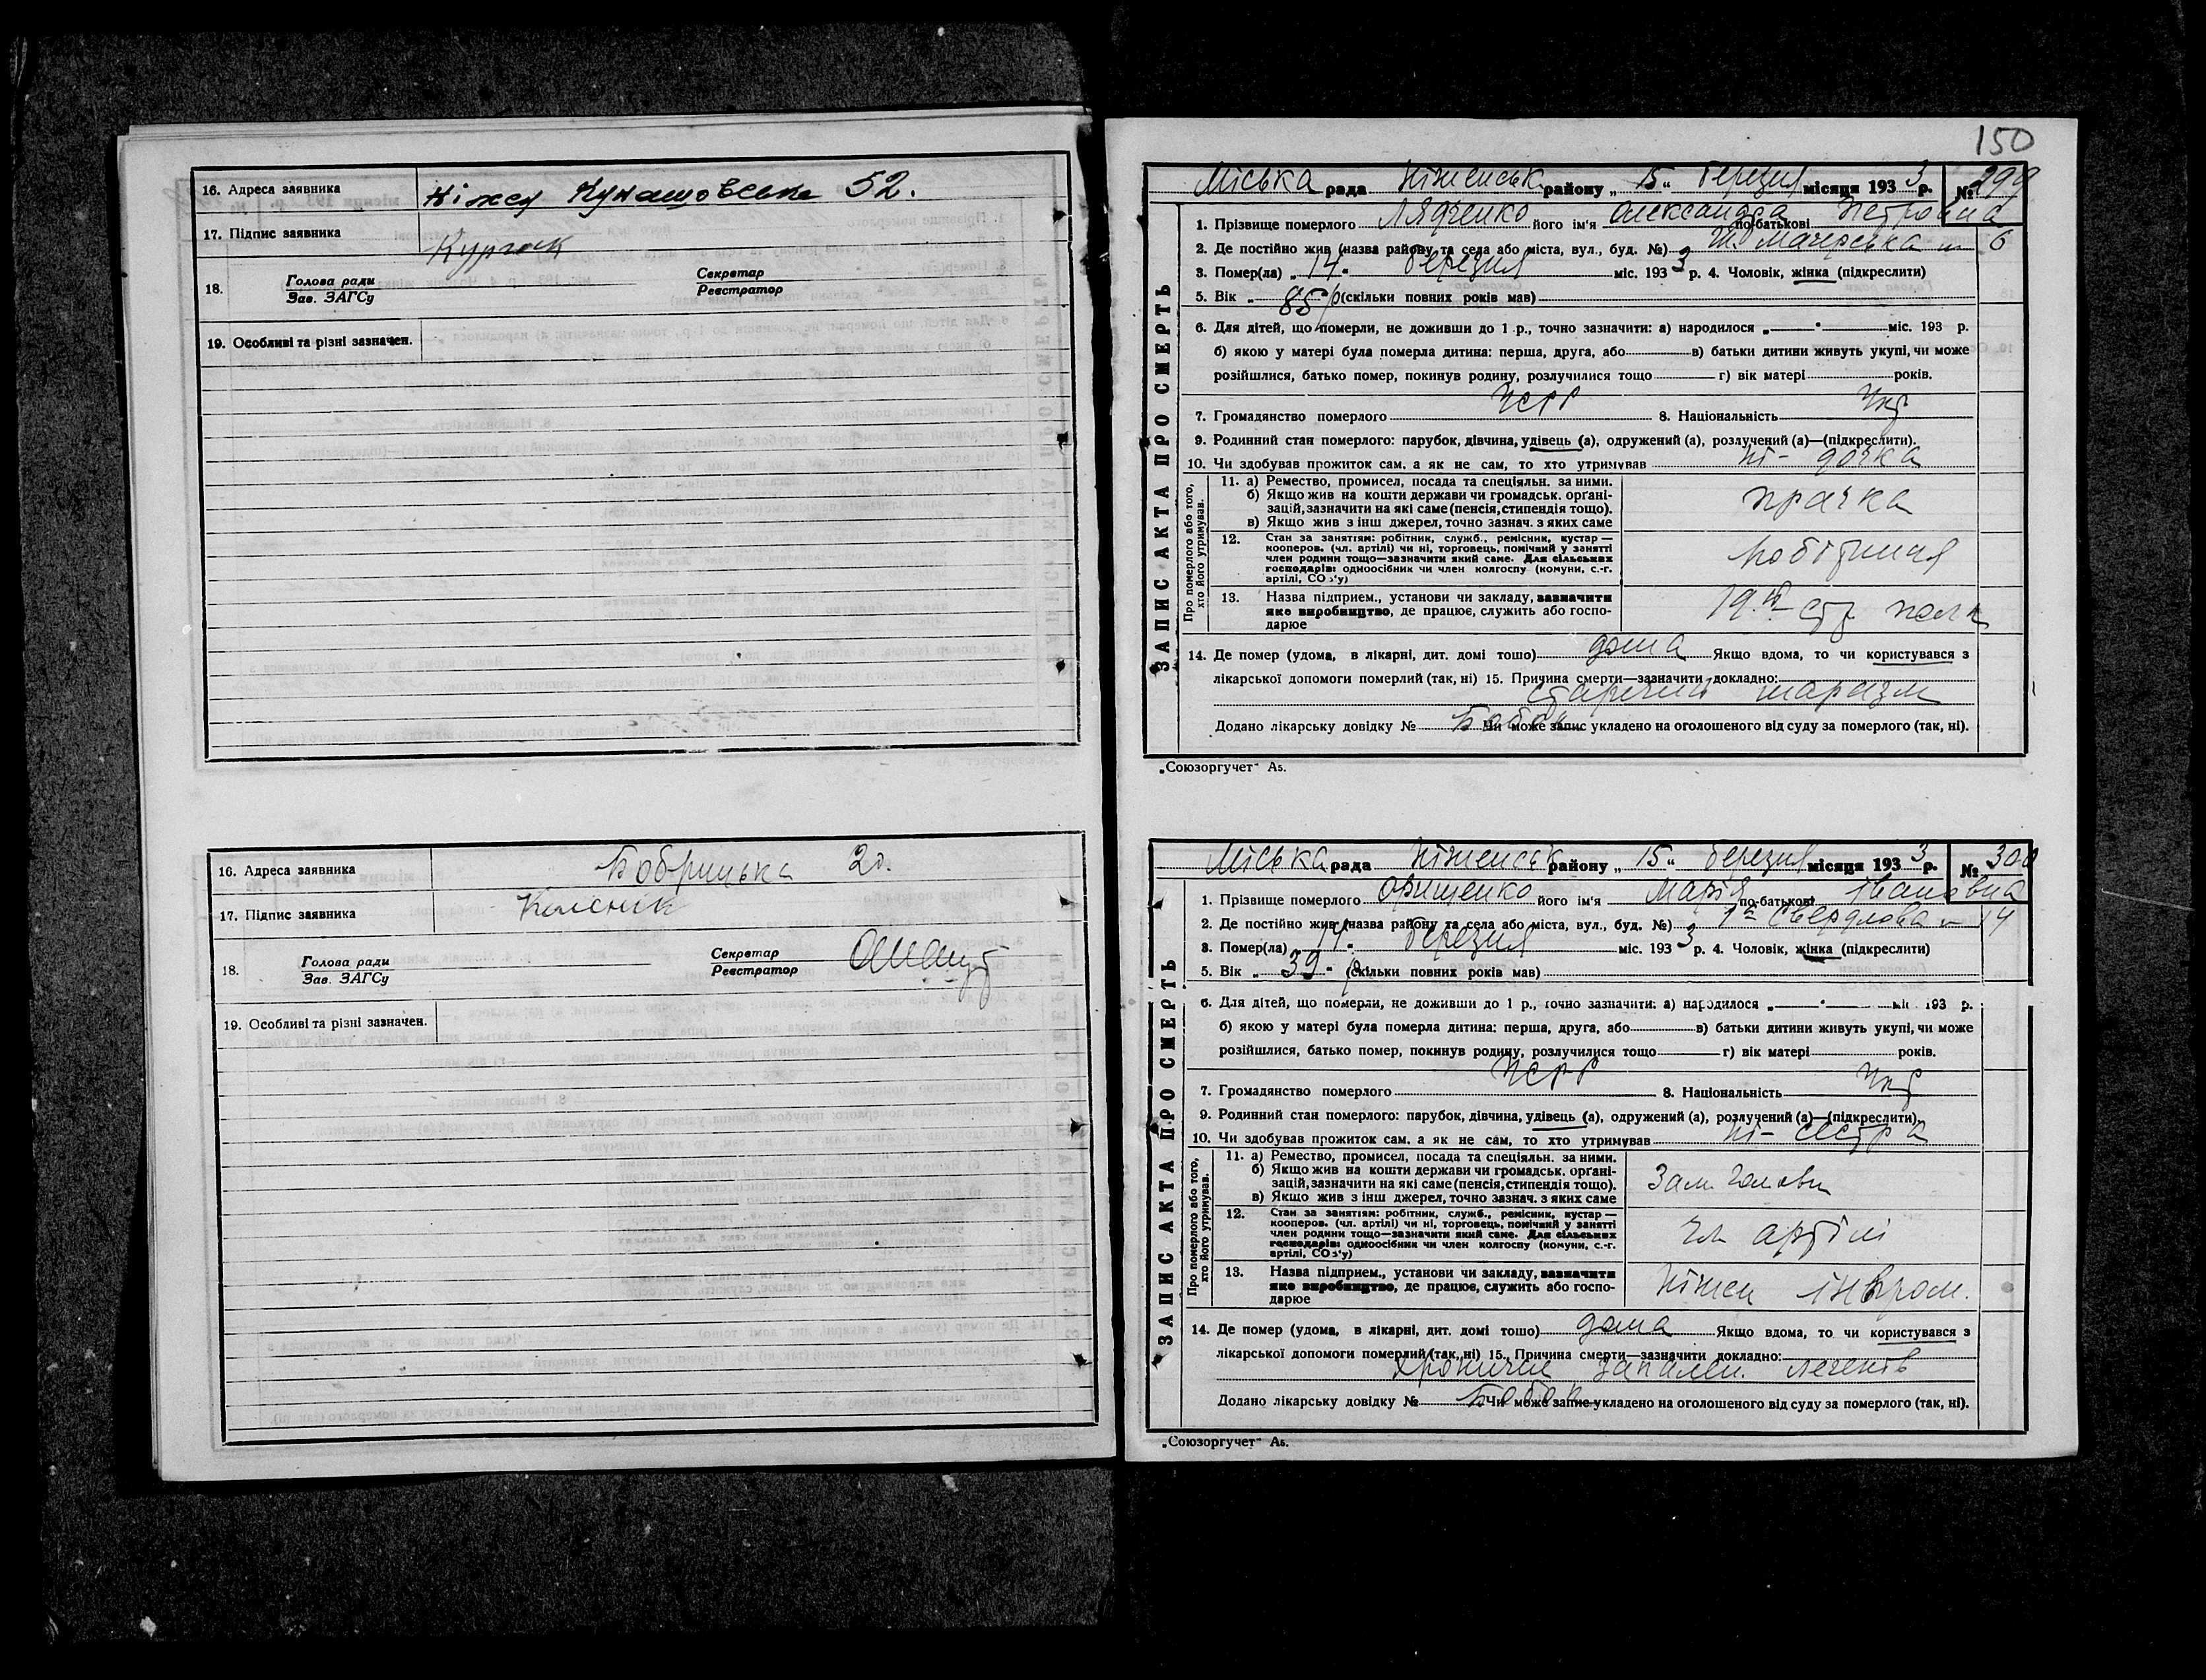 16. Адреса заявника Ніжен Кунашовська 52.
17. Підпис заявника
18. Голова ради Зав. ЗАГСу Секретар Реєстратор
19. Особливі та різні зазначен.
16. Адреса заявника Бобрицька 20.
17. Підпис заявника
18. Голова ради Зав. ЗАГСу Секретар Реєстратор
19. Особливі та різні зазначен.
150
Міська рада Ніженськ району „ 15 " березня місяця 1933 р. № 299
ЗАПИС АКТА ПРО СМЕРТЬ
1. Прізвище померлого Лядченко його ім'я Олександра по-батькові Петровна
2. Де постійно жив (назва району та села або міста, вул., буд. №) 6
3. Помер(ла) „ 14 " березня міс. 1933 р. 4. Чоловік, жінка (підкреслити)
5. Вік „ 85 р (скільки повних років мав)
6. Для дітей, що померли, не доживши до 1 р., точно зазначити: а) народилося „ " міс. 193 р.
б) якою у матері була померла дитина: перша, друга, або в) батьки дитини живуть укупі, чи може
розійшлися, батько помер, покинув родину, розлучилися тощо г) вік матері років.
7. Громадянство померлого УСРР 8. Національність Укр
9. Родинний стан померлого: парубок, дівчина, удівець (а), одружений (а), розлучений (а)—(підкреслити).
10. Чи здобував прожиток сам, а як не сам, то хто утримував ні - дочка
Про померлого або того, хто його утримував.
11. а) Ремество, промисел, посада та спеціяльн. за ними.
б) Якщо жив на кошти держави чи громадськ. органі-
зацій, зазначити на які саме (пенсія, стипендія тощо).
в) Якщо жив з інш джерел, точно зазнач. з яких саме
прачка
12. Стан за заняттям: робітник, служб., ремісник, кустар —
кооперов. (чл. артілі) чи ні, торговець, помічний у занятті
член родини тощо—зазначити який саме. Для сільських
господарів: одноосібник чи член колгоспу (комуни, с.-г.
артілі, СОЗ'у)
робітниця
13. Назва підприєм., установи чи закладу, зазначити
яке виробництво, де працює, служить або госпо-
дарює
19. стр полк
14. Де помер (удома, в лікарні, дит. домі тощо) дома Якщо вдома, то чи користувався з
лікарської допомоги померлий (так, ні) 15. Причина смерти—зазначити докладно:
старечий маразм
Додано лікарську довідку № Бабак Чи може запис укладено на оголошеного від суду за померлого (так, ні).
„Союзоргучет" А5.
Міська рада Ніженськ району „ 15 " березня місяця 1933 р. № 300
ЗАПИС АКТА ПРО СМЕРТЬ
1. Прізвище померлого Орищенко його ім'я Марія по-батькові Івановна
2. Де постійно жив (назва району та села або міста, вул., буд. №) Свердлова 14
3. Помер(ла) „ 14 " березня міс. 1933 р. 4. Чоловік, жінка (підкреслити)
5. Вік „ 39 " р (скільки повних років мав)
6. Для дітей, що померли, не доживши до 1 р., точно зазначити: а) народилося „ " міс. 193 р.
б) якою у матері була померла дитина: перша, друга, або в) батьки дитини живуть укупі, чи може
розійшлися, батько помер, покинув родину, розлучилися тощо г) вік матері років.
7. Громадянство померлого УСРР 8. Національність Укр
9. Родинний стан померлого: парубок, дівчина, удівець (а), одружений (а), розлучений (а)—(підкреслити).
10. Чи здобував прожиток сам, а як не сам, то хто утримував ні - сестра
Про померлого або того, хто його утримував.
11. а) Ремество, промисел, посада та спеціяльн. за ними.
б) Якщо жив на кошти держави чи громадськ. органі-
зацій, зазначити на які саме (пенсія, стипендія тощо).
в) Якщо жив з інш джерел, точно зазнач. з яких саме
Зам. голови
12. Стан за заняттям: робітник, служб., ремісник, кустар —
кооперов. (чл. артілі) чи ні, торговець, помічний у занятті
член родини тощо—зазначити який саме. Для сільських
господарів: одноосібник чи член колгоспу (комуни, с.-г.
артілі, СОЗ'у)
чл. артілі
13. Назва підприєм., установи чи закладу, зазначити
яке виробництво, де працює, служить або госпо-
дарює
Ніжен
14. Де помер (удома, в лікарні, дит. домі тощо) дома Якщо вдома, то чи користувався з
лікарської допомоги померлий (так, ні) 15. Причина смерти—зазначити докладно:
хронічне запален. легенів
Додано лікарську довідку № Бабак Чи може запис укладено на оголошеного від суду за померлого (так, ні).
„Союзоргучет" А5.